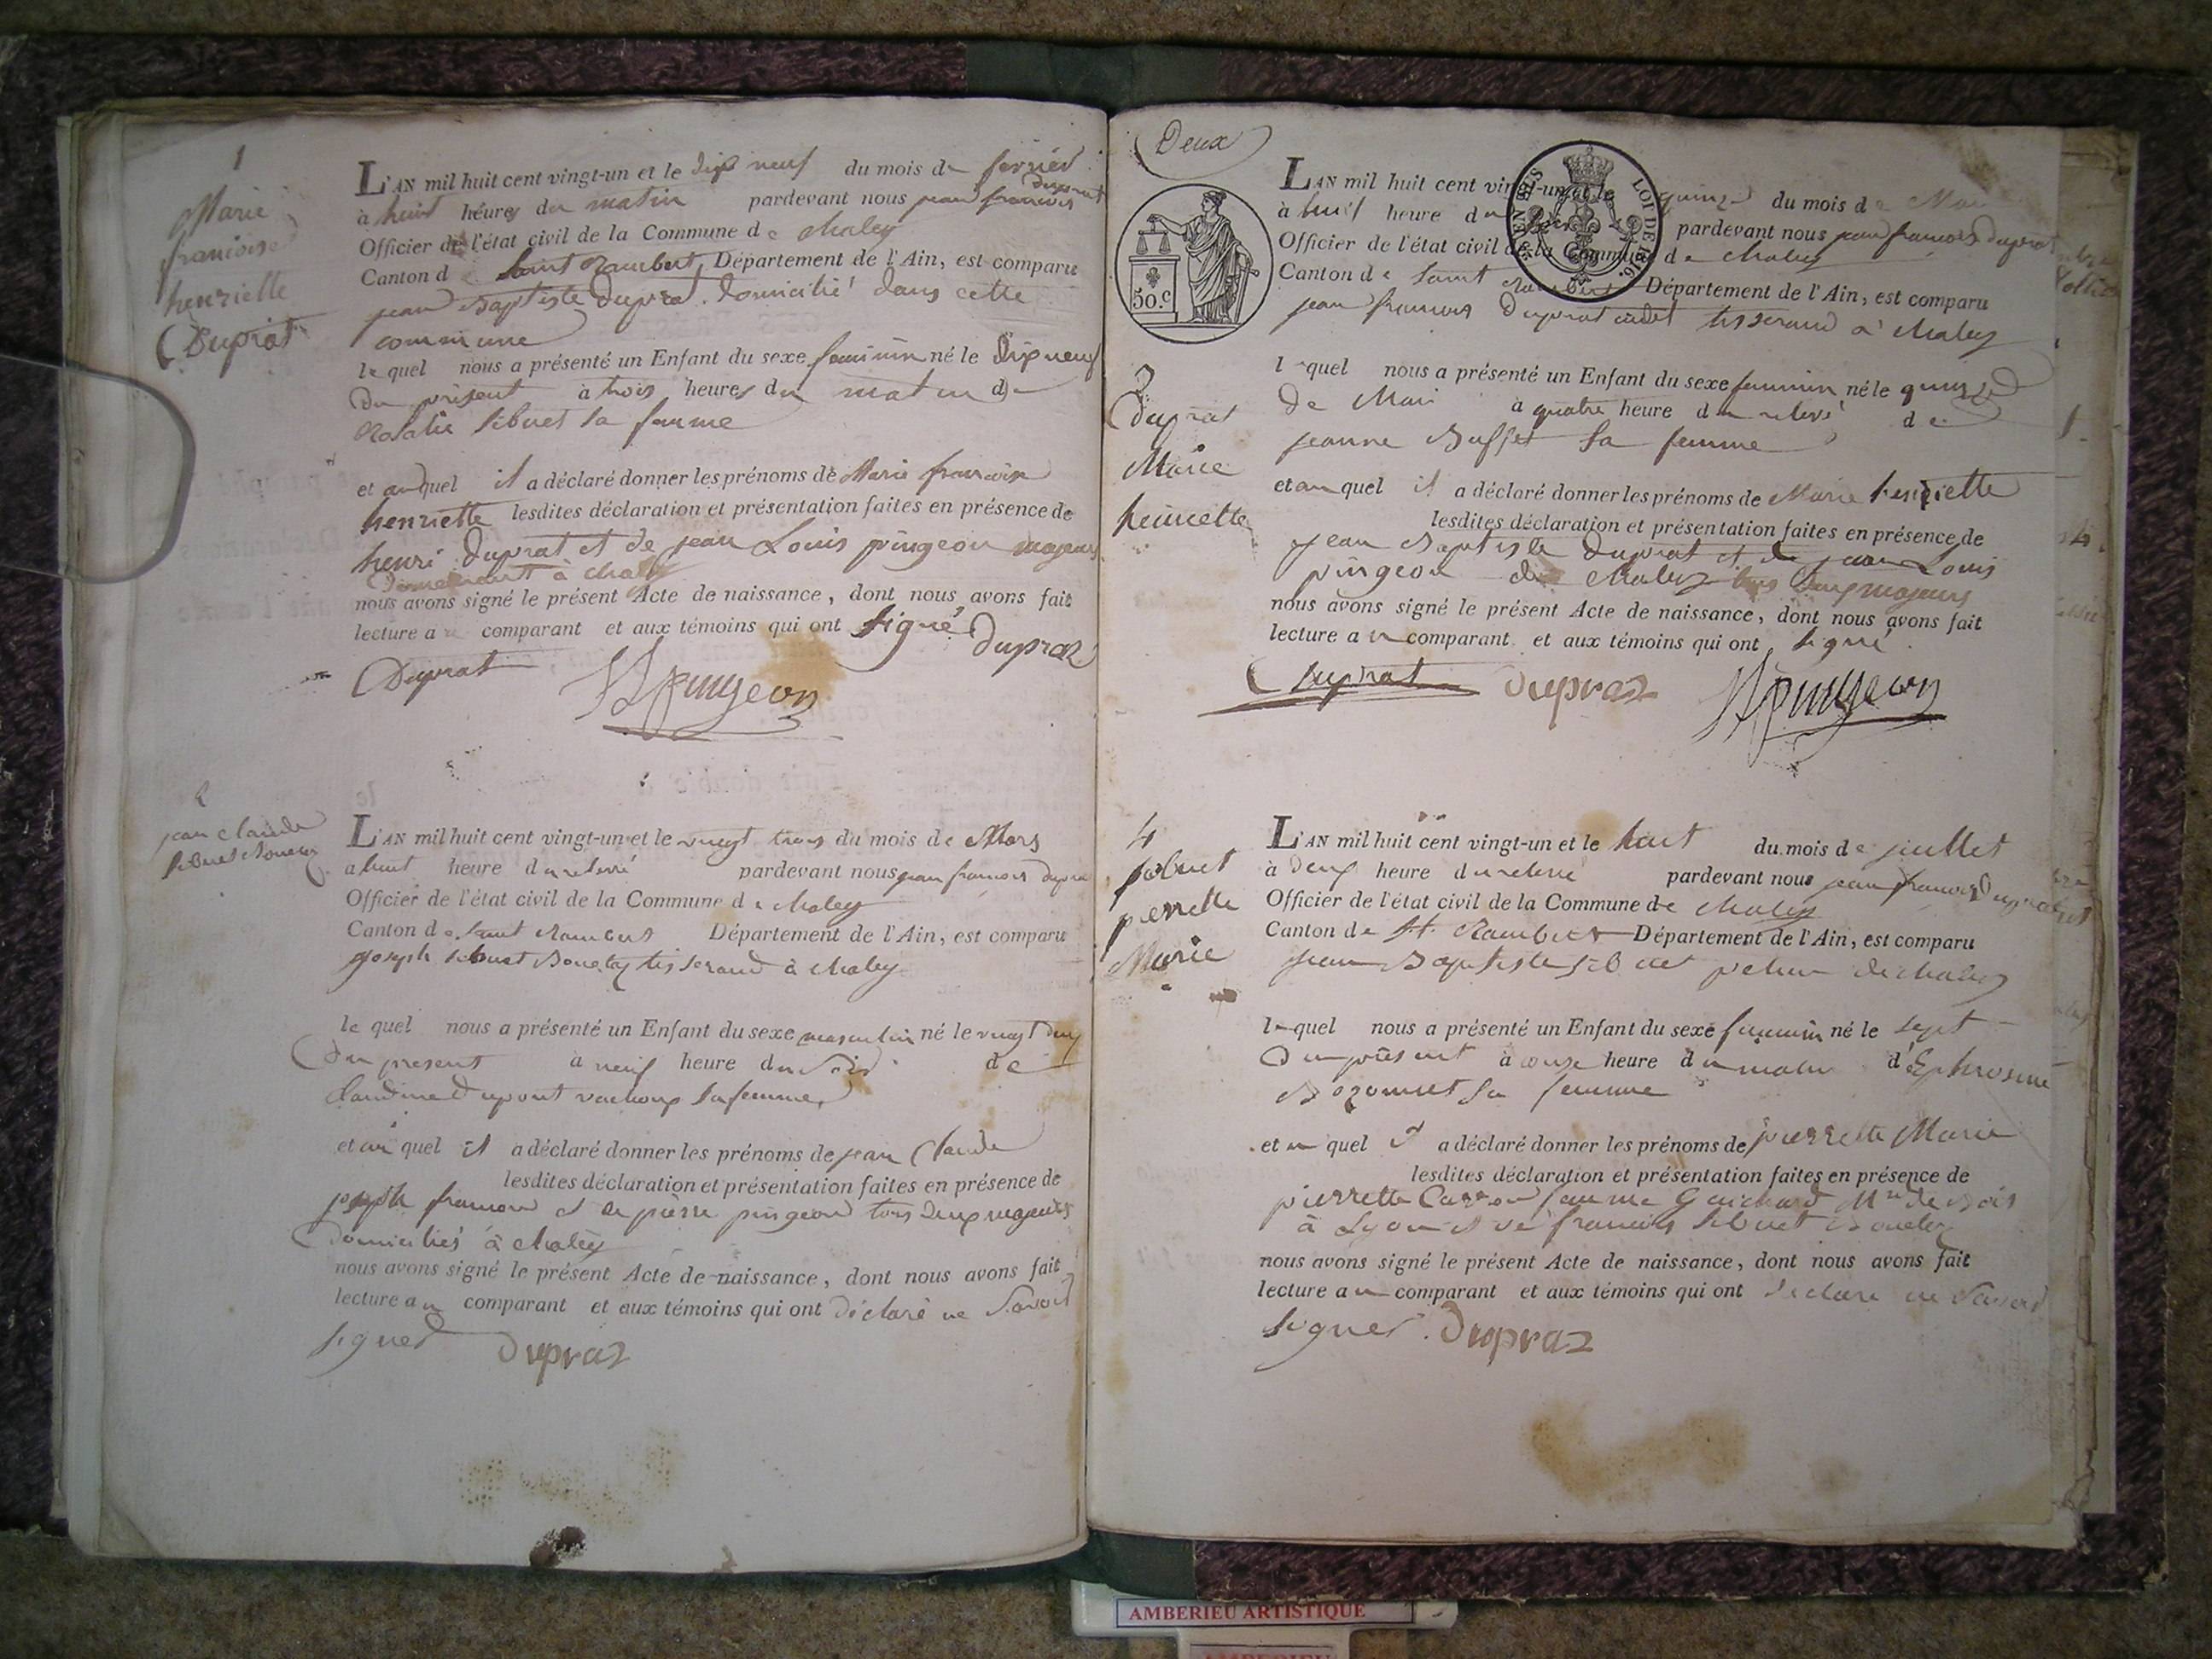 1
Marie
francoise
henriette
Duprat
L'AN mil huit cent vingt-un et le dix neuf du mois de fevrier
à huit heures du matin pardevant nous jean francois duprat
Officier de l'état civil de la Commune de chaley
Canton de Saint Rambert, Département de l'Ain, est comparu
jean Baptiste duprat domicilié dans cette
commune
lequel nous a présenté un Enfant du sexe feminin né le dix neuf
du présent à trois heures du matin de
Rosalie sibuet sa femme
et auquel il a déclaré donner les prénoms de Marie francoise
henriette lesdites déclaration et présentation faites en présence de
henri duprat et de jean Louis pingeon majeurs
demeurant à chaley
nous avons signé le présent Acte de naissance, dont nous avons fait
lecture au comparant et aux témoins qui ont signé
dupraz
Duprat JLpingeon
2
jean claude
sibuet Bouetaz
L'AN mil huit cent vingt-un et le vingt trois du mois de Mars
à huit heure du relevé pardevant nous jean francois duprat
Officier de l'état civil de la Commune de chaley
Canton de Saint Rambert Département de l'Ain, est comparu
joseph sibuet Bouetaz tisserand à chaley
lequel nous a présenté un Enfant du sexe masculin né le vingt deux
du present à neuf heure du soir de
claudine dupont sa femme
et au quel il a déclaré donner les prénoms de jean claude
lesdites déclaration et présentation faites en présence de
joseph et de pierre pingeon tous deux majeurs
domiciliés à chaley
nous avons signé le présent Acte de naissance, dont nous avons fait
lecture au comparant et aux témoins qui ont déclaré ne savoir
signer dupraz
Deux
50.C
LOI DE 1816.
L'AN mil huit cent vingt-un et le quinze du mois de Mai
à huit heure du pardevant nous jean francois duprat
Officier de l'état civil de la Commune de chaley
Canton de Saint Rambert Département de l'Ain, est comparu
jean francois duprat cadet tisserand à chaley
3
duprat
Marie
henriette
lequel nous a présenté un Enfant du sexe feminin né le quinze
de Mai à quatre heure du relevé de
jeanne Buffet sa femme
et au quel il a déclaré donner les prénoms de Marie henriette
lesdites déclaration et présentation faites en présence de
jean Baptiste duprat et de jean Louis
pingeon de chaley tous deux majeurs
nous avons signé le présent Acte de naissance, dont nous avons fait
lecture au comparant et aux témoins qui ont signé
Duprat dupraz JLpingeon
4
sibuet
pierrette
Marie
L'AN mil huit cent vingt-un et le huit du mois de juillet
à deux heure du relevé pardevant nous jean francois duprat
Officier de l'état civil de la Commune de chaley
Canton de St. Rambert Département de l'Ain, est comparu
jean Baptiste sibuet de chaley
lequel nous a présenté un Enfant du sexe feminin né le sept
du présent à onze heure du matin d'Ephrosine
Bozonnet sa femme
et au quel il a déclaré donner les prénoms de pierrette Marie
lesdites déclaration et présentation faites en présence de
pierrette femme Guichard Md de Bois
à Lyon et de francois sibuet Bouetaz
nous avons signé le présent Acte de naissance, dont nous avons fait
lecture au comparant et aux témoins qui ont declaré ne savoir
signer. dupraz
AMBERIEU ARTISTIQUE
AMBERIEU